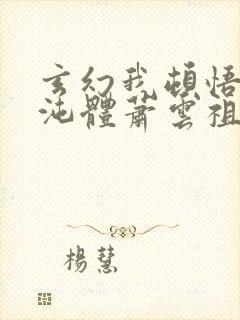 玄幻我頓悟
沌體蕭雲祖
楊慧